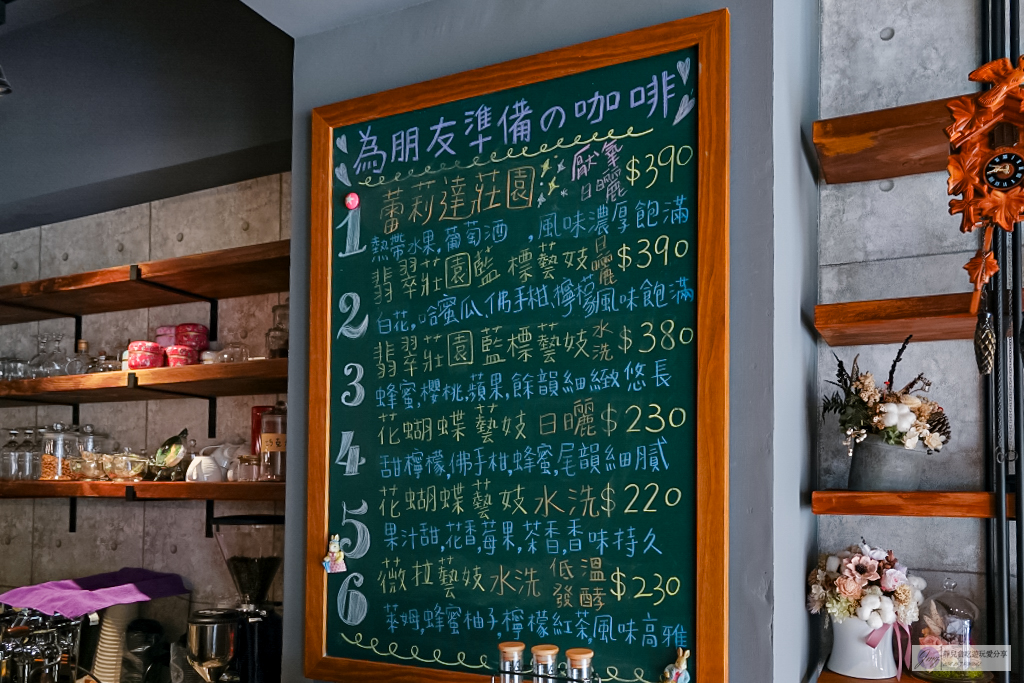 為朋友準備の咖啡
1 蕾莉達莊園 厭氧日曬 $390
熱帶水果,葡萄酒,風味濃厚飽滿
2 翡翠莊園藍標藝妓 日曬 $390
白花,哈蜜瓜,佛手柑,檸檬,風味飽滿
3 翡翠莊園藍標藝妓 水洗 $380
蜂蜜,櫻桃,蘋果,餘韻細緻悠長
4 花蝴蝶藝妓 日曬 $230
甜檸檬,佛手柑,蜂蜜,尾韻細膩
5 花蝴蝶藝妓水洗 $220
果汁甜,花香莓果,茶香,香味持久
6 薇拉藝妓水洗 低溫發酵 $230
萊姆,蜂蜜柚子,檸檬紅茶,風味高雅